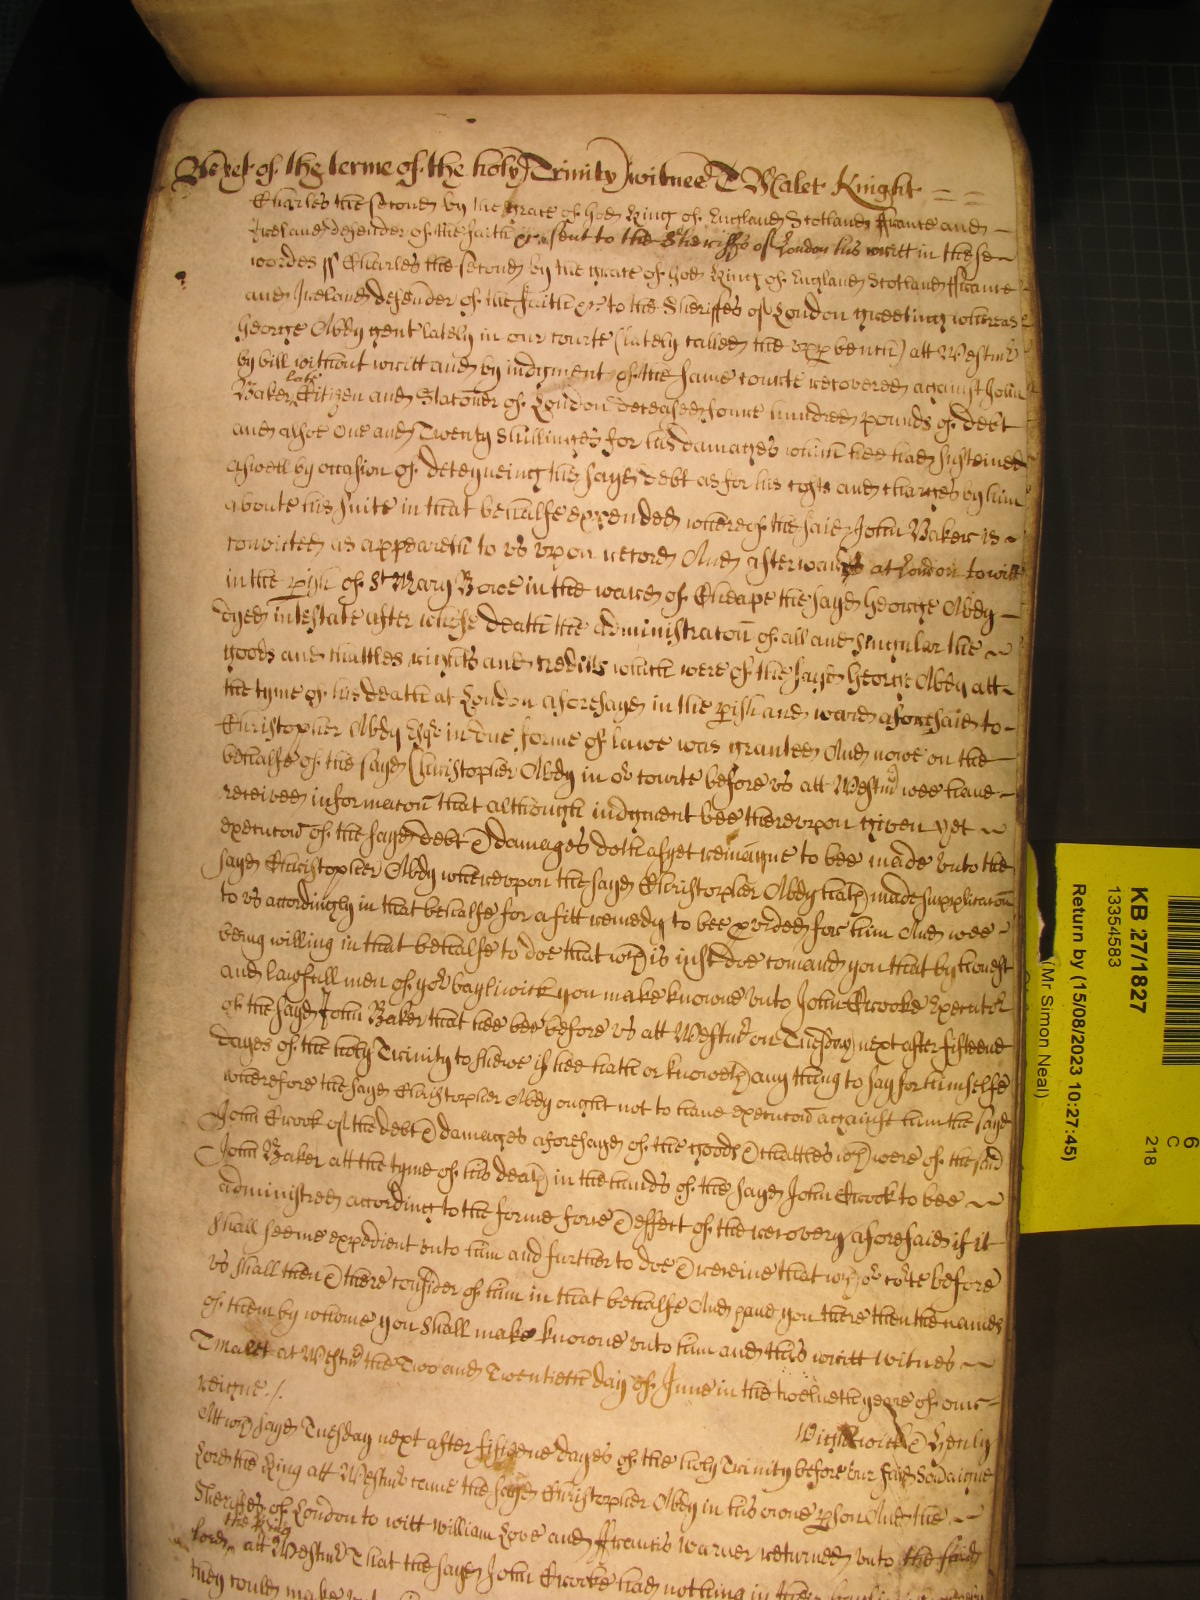 Yet of the terme of the holy Trinity witnes T Malet Knight
Charles the second by the grace of God King of England Scotland ffrance and
Ireland defender of the faith &c. sent to the Sheriffs of London his writt in these
wordes ss Charles the second by the grace of God King of England Scotland ffrance
and Ireland defender of the faith &c. to the Sheriffes of London greeting whereas
George Abdy gent lately in our courte (lately called the vpp bench) att Westmr
by bill without writt and by iudgment of the same courte recovered against John
Baker late Citizen and Stacõner of London deceased foure hundred pounds of debt
and alsoe one and Twenty shillinges for his damages which hee had susteined
aswell by occasion of deteyneing the sayd debt as for his costs and charges by him
aboute his suite in that behalfe expended whereof the said John Baker is
convicted as appeareth to vs vpon record And afterwards at London to witt
in the pish of St Mary Bowe in the ward of Cheape the sayd George Abdy
dyed intestate after whose death the administracoñ of all and singular the
goods and chattles rights and credits which were of the sayd George Abdy att
the tyme of his death at London aforesayd in the pish and ward aforesaid to
Christopher Abdy Esqr in due forme of lawe was granted And nowe on the
behalfe of the sayd Christopher Abdy in or courte before vs att Westmr wee have
received informacoñ that although iudgment bee therevpon given yet
execucoñ of the sayd debt & damages doth as yet remayne to bee made vnto the
sayd Christopher Abdy wherevpon the sayd Christopher Abdy hath made supplicacoñ
to vs accordingly in that behalfe for a fitt remedy to bee pvided for him And wee
being willing in that behalfe to doe that wch is iust doe comand you that by honest
and lawfull men of yor baylywick you make knowne vnto John Crooke Executor
of the sayd John Baker that hee bee before vs att Westmr on Tuesday next after fifteene
dayes of the holy Trinity to shewe if hee hath or knoweth any thing to say for himselfe
wherefore the sayd Christopher Abdy ought not to have execucoñ against him the sayd
John Crook of the debt & damages aforesayd of the goods & chattles wch were of the said
John Baker att the tyme of his death in the hands of the sayd John Crook to bee
administred according to the forme force & effect of the recovery aforesaid if it
shall seeme expedient vnto him and further to doe & receive that wch or corte before
vs shall then & there consider of him in that behalfe And have you there then the names
of them by whome you shall make knowne vnto him and this writt Witnes
T Malett at Westmr the Two and Twentieth day of June in the twelueth yeare of our
reigne ./.
Wightwick & Henly
Att wch sayd Tuesday next after fifteene dayes of the holy Trinity before our said Soveraigne
Lord the King att Westmr came the sayd Christopher Abdy in his owne pson And the
Sheriffes of London to witt William Love and ffrancis Warner returned vnto the said
lord the King att Westmr That the sayd John Crooke had nothing in their
they could make
KB 27/1827
13354583
Return by (15/08/2023 10:27:45)
(Mr Simon Neal)
6
C
218